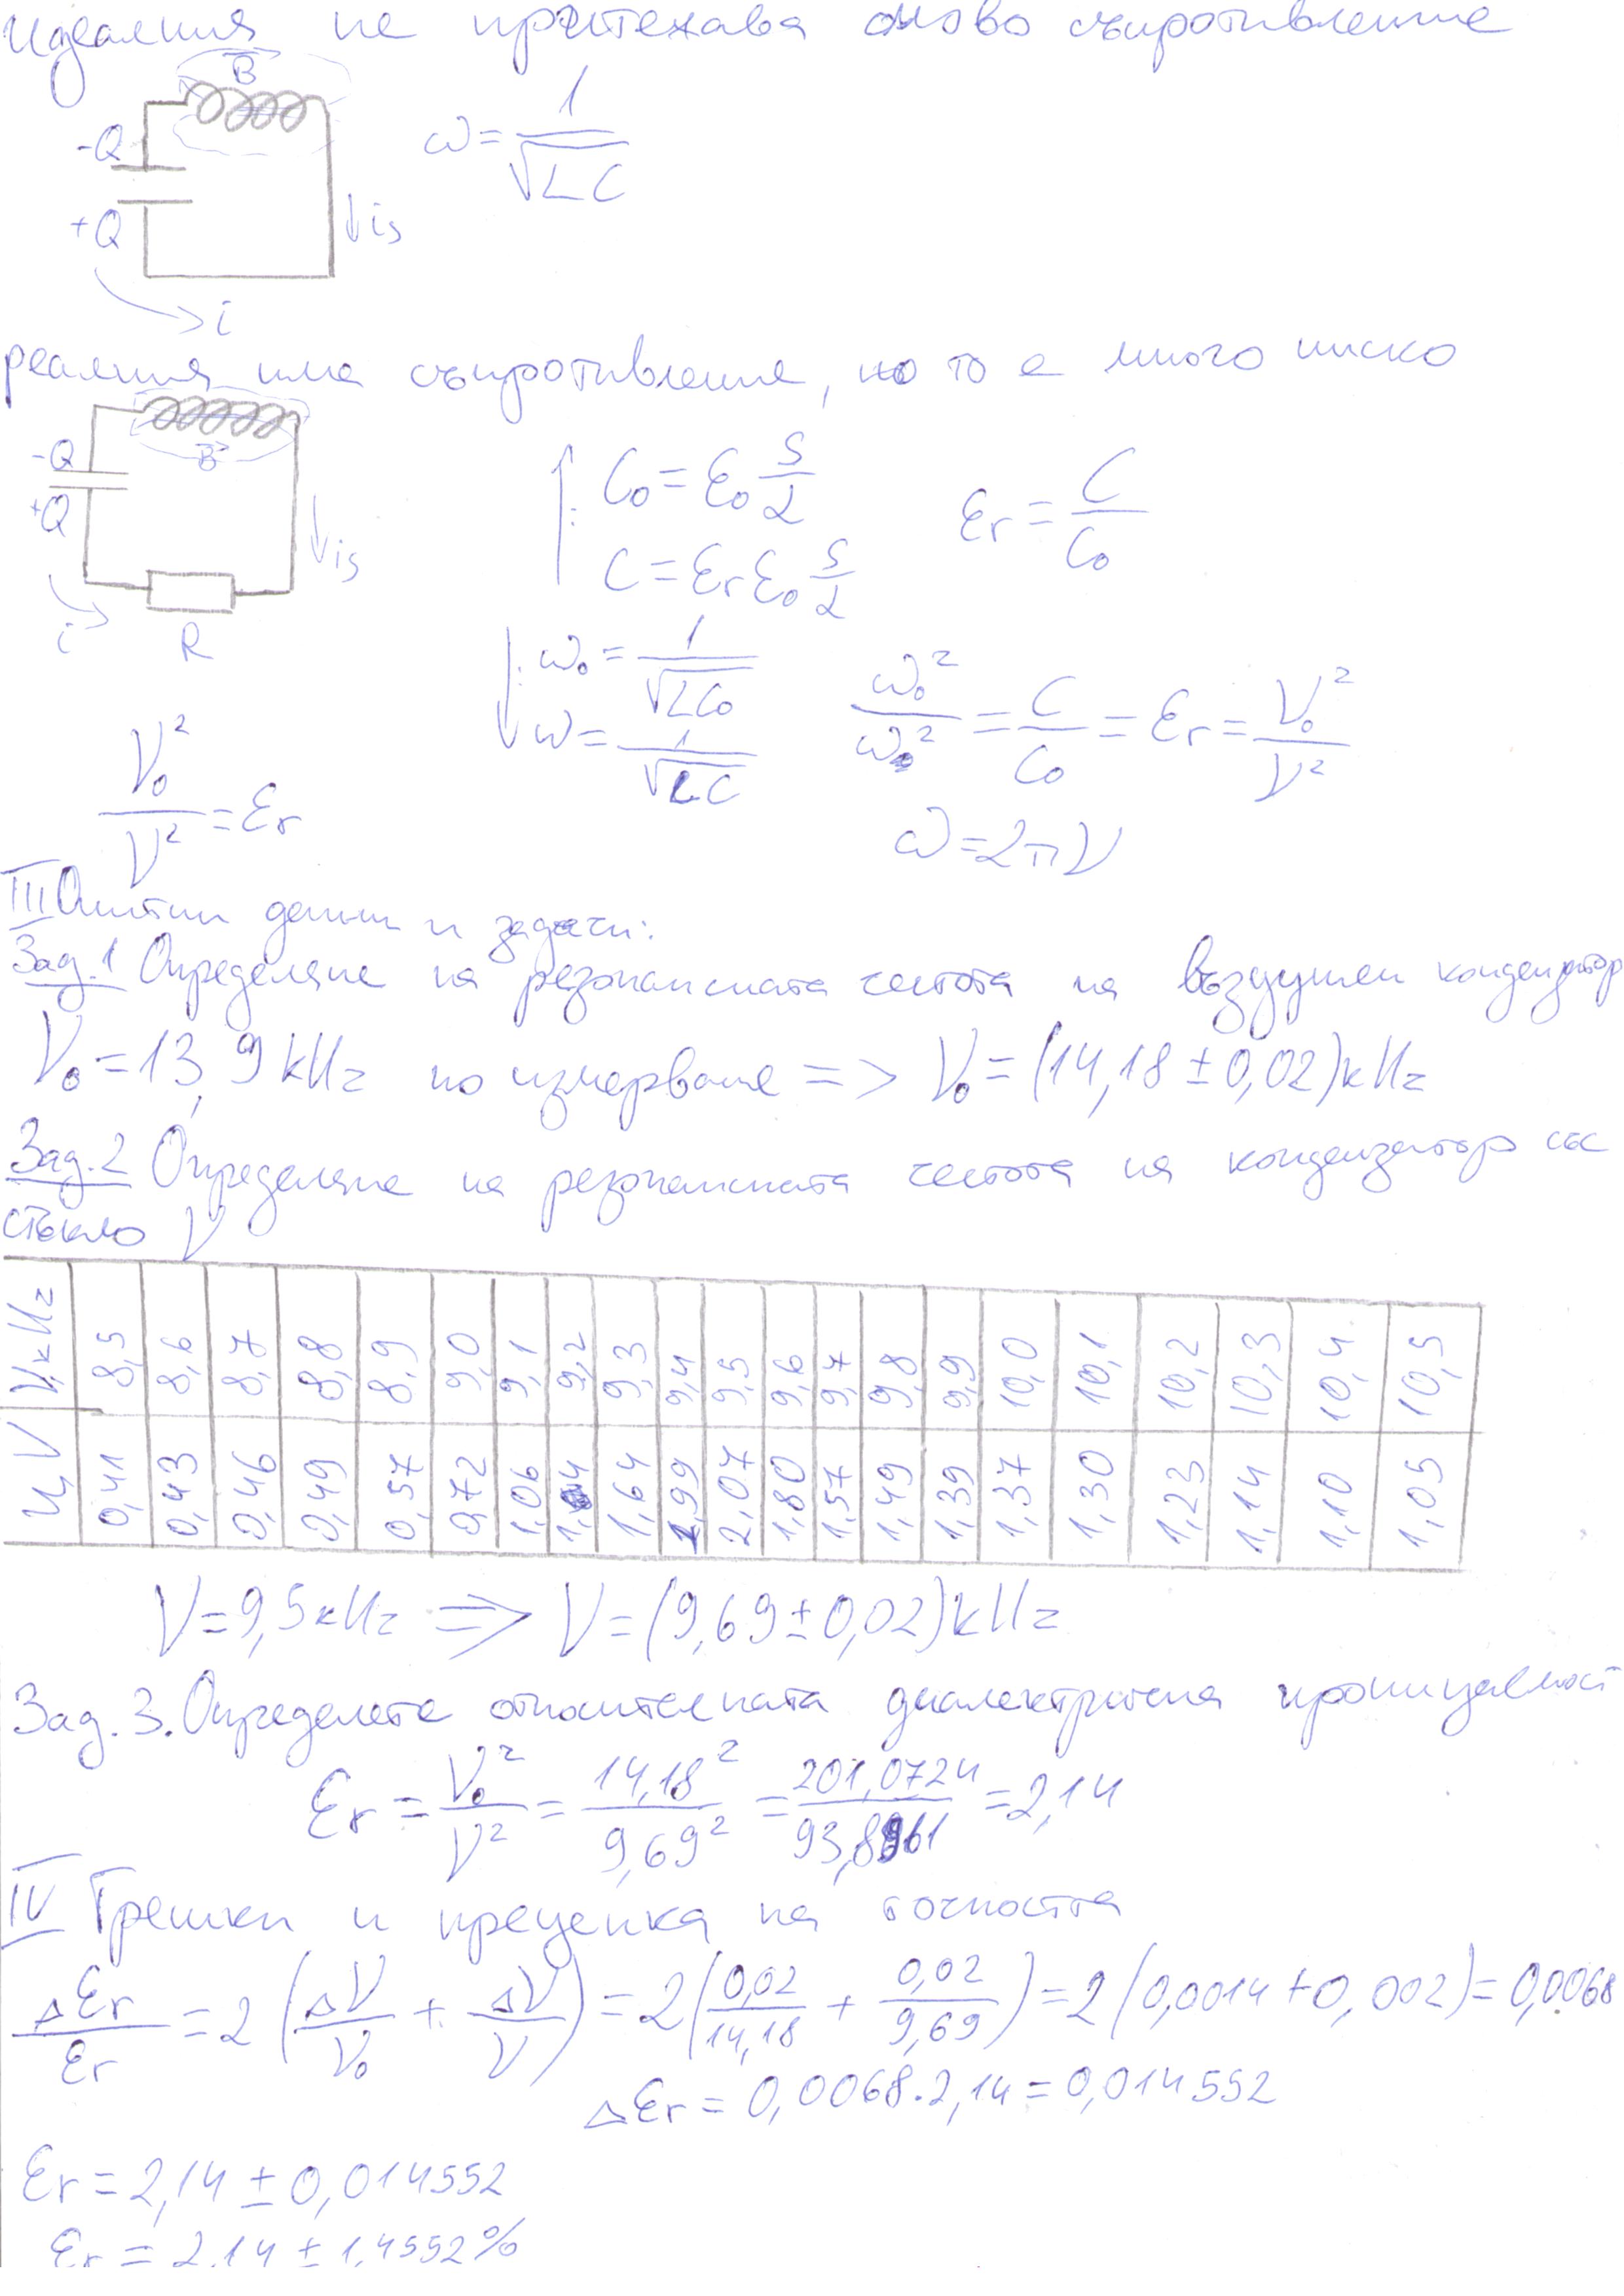 идеалния не притежава омово съпротивление
B
-Q
+Q
is
i
ω = 1/√LC
реалния има съпротивление, но то е много ниско
B
-Q
+Q
is
i
R
C₀ = ε₀ S/d
C = εr ε₀ S/d
εr = C/C₀
ω₀ = 1/√LC₀
ω = 1/√LC
ω₀²/ω² = C/C₀ = εr = ν₀²/ν²
ν₀²/ν² = εr
ω = 2πν
III Опитни данни и задачи:
Зад. 1 Определяне на резонансната честота на въздушен кондензатор
ν₀ = 13,9 kHz по измерване => ν₀ = (14,18 ± 0,02) kHz
Зад. 2 Определяне на резонансната честота на кондензатор със
стъкло ν
ν, kHz 8,5 8,6 8,7 8,8 8,9 9,0 9,1 9,2 9,3 9,4 9,5 9,6 9,7 9,8 9,9 10,0 10,1 10,2 10,3 10,4 10,5
U, V 0,41 0,43 0,46 0,49 0,57 0,72 1,06 1,64 1,99 2,07 1,80 1,57 1,49 1,39 1,37 1,30 1,23 1,14 1,10 1,05
ν = 9,5 kHz => ν = (9,69 ± 0,02) kHz
Зад. 3. Определете относителната диалектрична проницаемост
εr = ν₀²/ν² = 14,18²/9,69² = 201,0724/93,8961 = 2,14
IV Грешки и преценка на точността
Δεr/εr = 2 (Δν/ν₀ + Δν/ν) = 2 (0,02/14,18 + 0,02/9,69) = 2 (0,0014 + 0,002) = 0,0068
Δεr = 0,0068 . 2,14 = 0,014552
εr = 2,14 ± 0,014552
εr = 2,14 ± 1,4552%